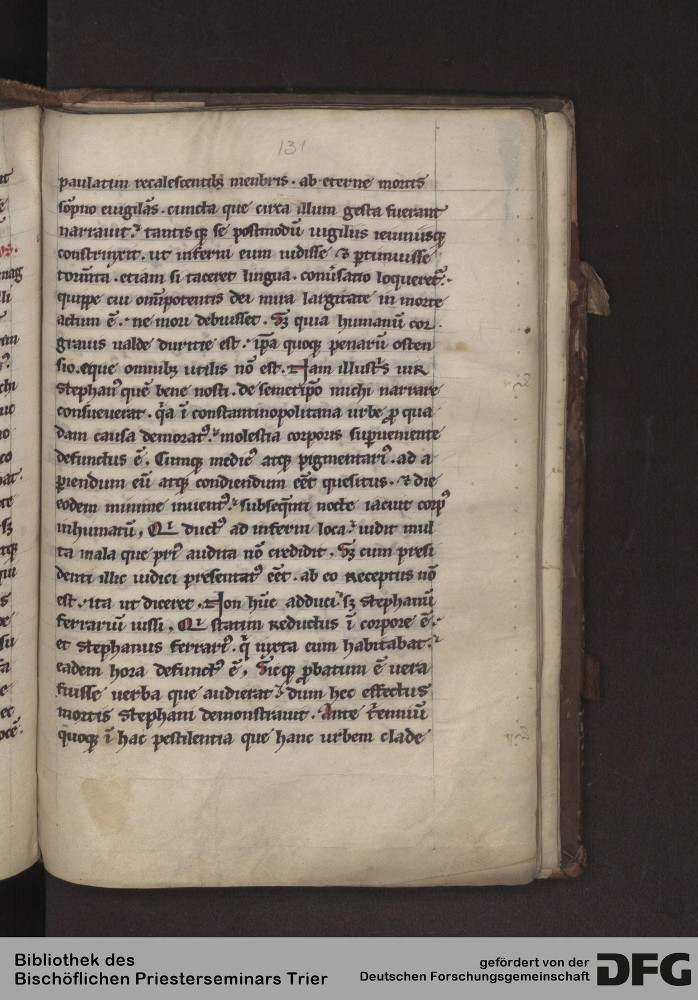 131
paulatim recalescentibꝫ menbris . ab eterne mortis
sōpno euigilās . cuncta que circa illum gesta fuerant
narrauit .᷎ tantis qꝫ se postmodū uigiliis ieiuniisqꝫ
construxit . ut inferni eum uidisse ⁊ ꝑtimuisse
torm̄ta . etiam si taceret lingua . conūsatio loqueretꝰ .
quippe cui omīpotentis dei mira largitate in morte
actum ē . ne mori debuisset . Sꝫ quia humanū cor
grauis ualde duritie est . ip̄a quoqꝫ penarū osten
sio . eque omnibꝫ utilis nō est . Nam illustris uir
Stephanꝰ quē bene nosti . de semetip̄o michi narrare
consueuerat . q̇a ī constantinopolitana urbe ꝓ qua
dam causa demoratꝰ . molestia corporis suꝑueniente
defunctus ē . Cumqꝫ medicꝰ atqꝫ pigmentariꝰ . ad a
ꝑiendum eū atqꝫ condiendum eēt quesitus . ⁊ die
eodem minime inuentꝰ . subseq̄nti nocte iacuit corpꝰ
inhumatū , Qui ductꝰ ad inferni loca . uidit mul
ta mala que priꝰ audita nō credidit . Sꝫ cum presi
denti illic iudici presentatꝰ eēt . ab eo receptus nō
est . ita ut diceret . Non hūc adduci . sꝫ Stephanū
ferrariū iussi , Qui statim reductus ī corpore ē .
et Stephanus ferrariꝰ . q̇ iuxta eum habitabat .
eadem hora defunctꝰ ē , Sicqꝫ ꝓbatum ē uera
fuisse uerba que audierat . dum hec effectus
mortis Stephani demonstrauit . Ante t̄enniū
quoqꝫ ī hac pestilentia que hanc urbem clade
Bibliothek des
Bischöflichen Priesterseminars Trier
gefördert von der
Deutschen Forschungsgemeinschaft
DFG